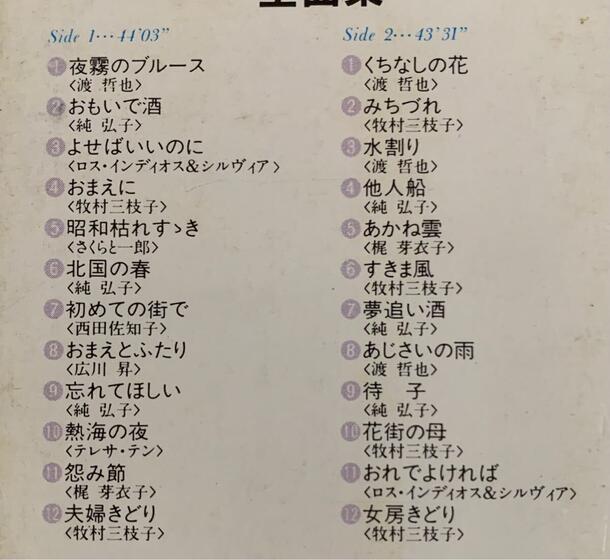 Side 1…44'03"
❶夜霧のブルース
〈渡 哲也〉
❷おもいで酒
〈純 弘子〉
❸よせばいいのに
〈ロス・インディオス&シルヴィア〉
❹おまえに
〈牧村三枝子〉
❺昭和枯れすゝき
〈さくらと一郎〉
❻北国の春
〈純 弘子〉
❼初めての街で
〈西田佐知子〉
❽おまえとふたり
〈広川 昇〉
❾忘れてほしい
〈純 弘子〉
❿熱海の夜
〈テレサ・テン〉
⓫怨み節
〈梶 芽衣子〉
⓬夫婦きどり
〈牧村三枝子〉
Side 2…43'31"
❶くちなしの花
〈渡 哲也〉
❷みちづれ
〈牧村三枝子〉
❸水割り
〈渡 哲也〉
❹他人船
〈純 弘子〉
❺あかね雲
〈梶 芽衣子〉
❻すきま風
〈牧村三枝子〉
❼夢追い酒
〈純 弘子〉
❽あじさいの雨
〈渡 哲也〉
❾待 子
〈純 弘子〉
❿花街の母
〈牧村三枝子〉
⓫おれでよければ
〈ロス・インディオス&シルヴィア〉
⓬女房きどり
〈牧村三枝子〉